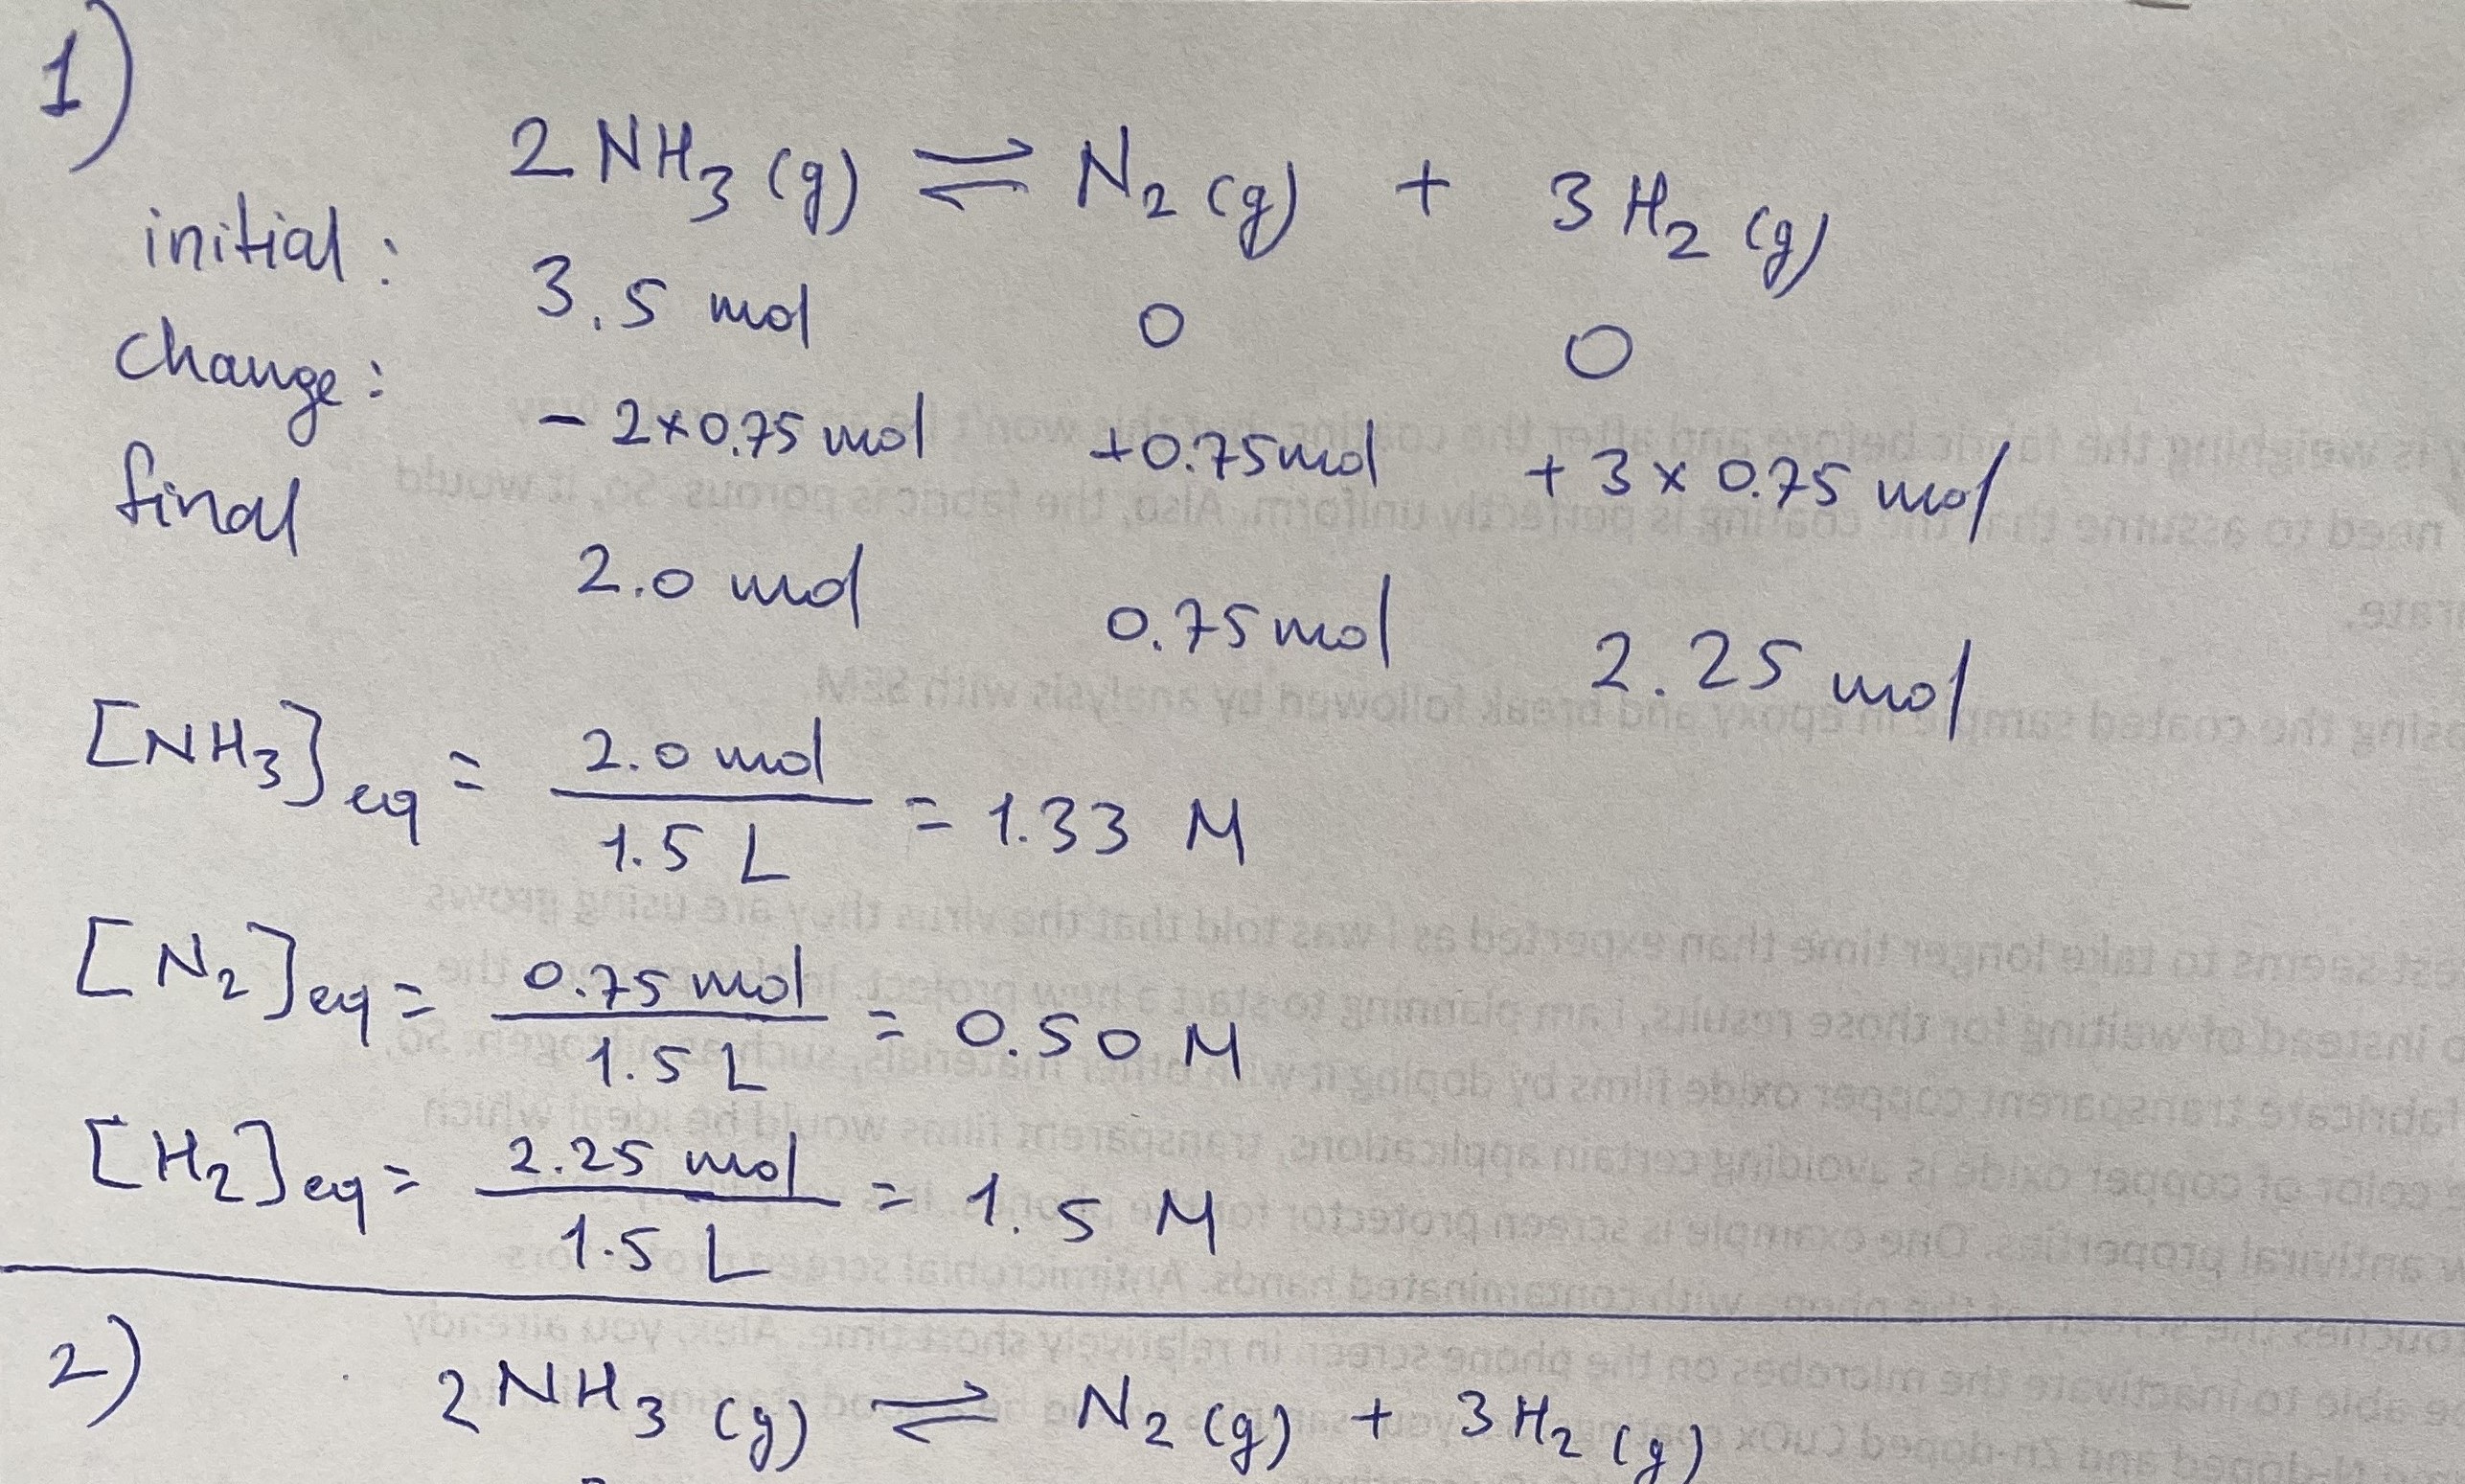 1)
2 NH3 (g) ⇌ N2 (g) + 3 H2 (g)
initial: 3.5 mol 0 0
change: - 2×0.75 mol +0.75 mol + 3 × 0.75 mol
final 2.0 mol 0.75 mol 2.25 mol
[NH3]eq = 2.0 mol / 1.5 L = 1.33 M
[N2]eq = 0.75 mol / 1.5 L = 0.50 M
[H2]eq = 2.25 mol / 1.5 L = 1.5 M
2) 2 NH3 (g) ⇌ N2 (g) + 3 H2 (g)